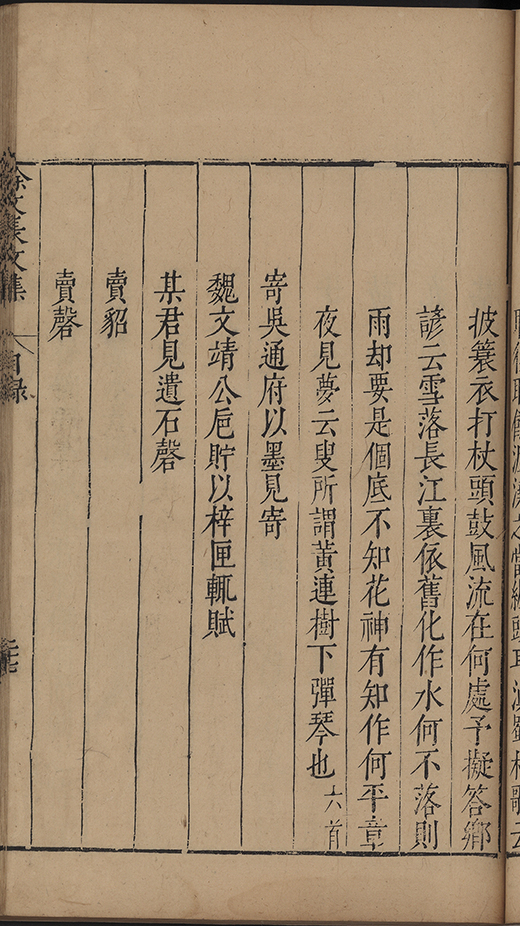 披簑衣打杖頭鼓風流在何處予擬答鄉
諺云雪落長江裏依舊化作水何不落則
雨却要是個底不知花神有知作何平章
夜見夢云叟所謂黃連樹下彈琴也六首
寄吳通府以墨見寄
魏文靖公巵貯以梓匣輒賦
某君見遺石磬
賣貂
賣磬
徐文長文集
目錄